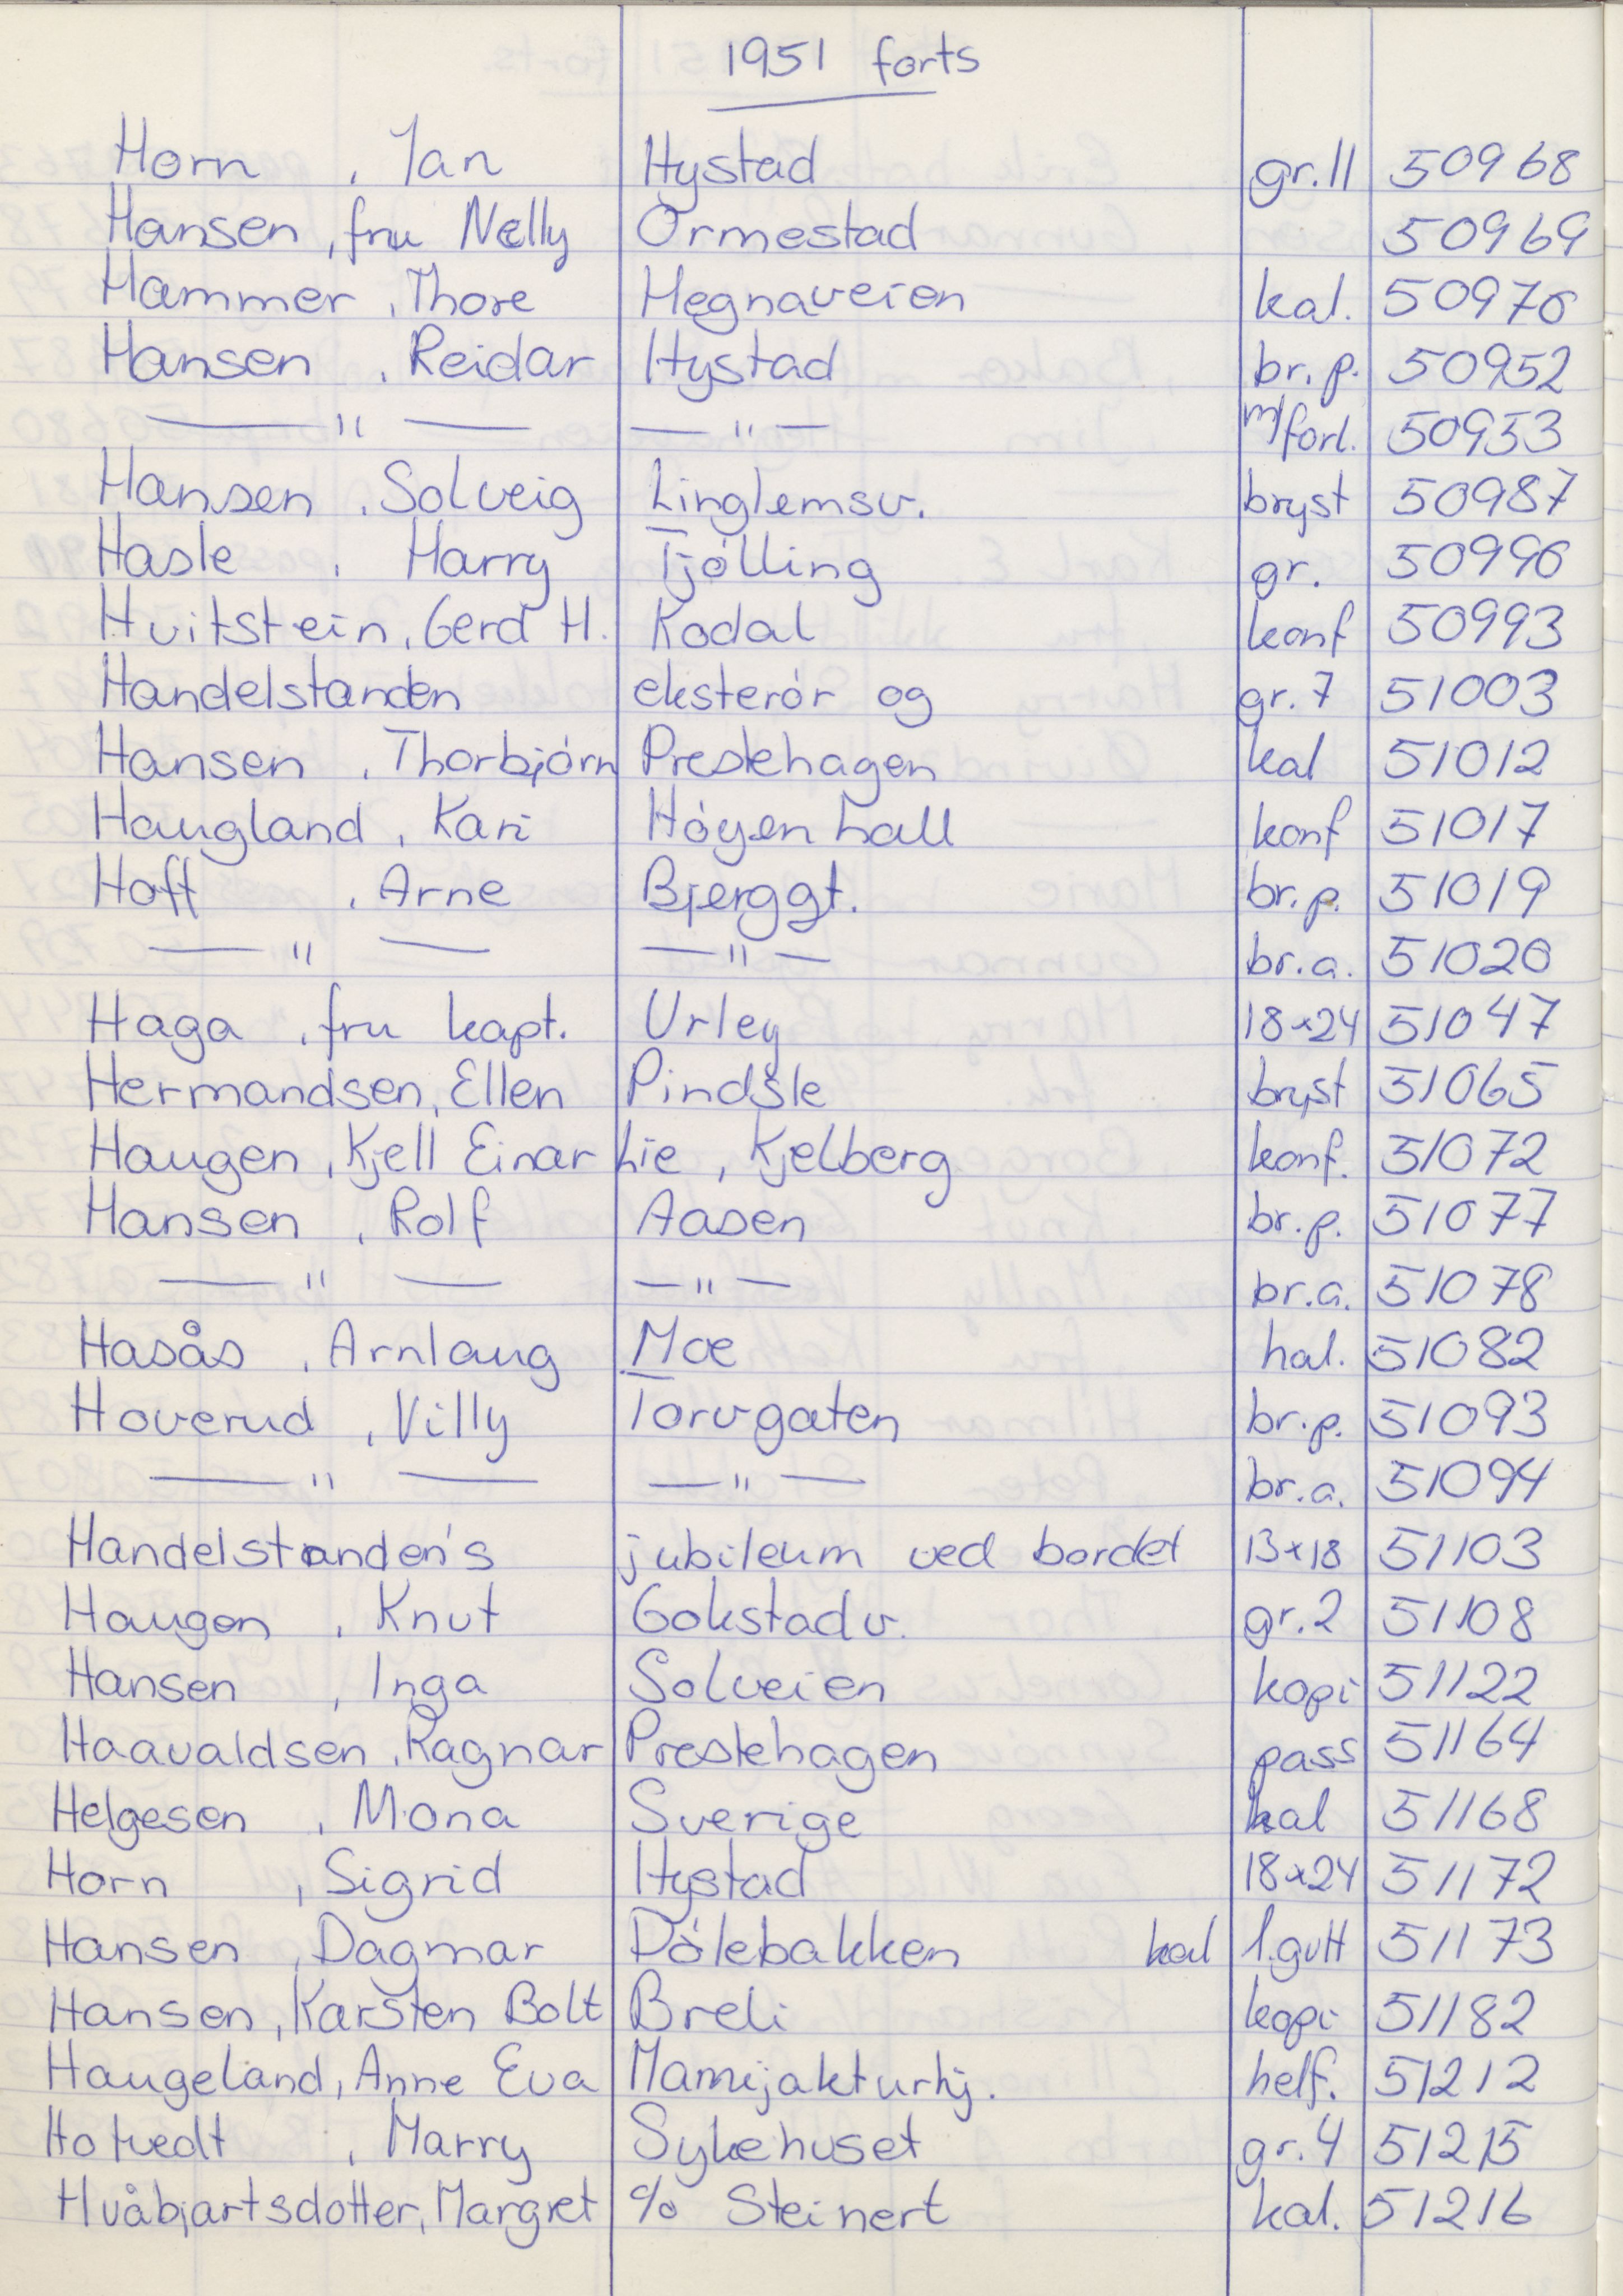 1951 forts
Horn , Jan Hystad gr.11 50968
Hansen, fru Nelly Ormestad 50969
Hammer , Thore Hegnaveien kal. 50970
Hansen , Reidar Hystad br.p. 50952
— " — — " — m/forl. 50953
Hansen , Solveig Linglemsv. bryst 50987
Hasle , Harry Tjølling gr. 50990
Hvitstein, Gerd H. Kodal konf 50993
Handelstanden eksteriør og gr.7 51003
Hansen , Thorbjørn Prestehagen kal 51012
Haugland , Kari Høyenhall konf 51017
Hoff , Arne Bjerggt. br.p. 51019
— " — — " — br.a. 51020
Haga , fru kapt. Urley 18x24 51047
Hermandsen, Ellen Pindsle bryst 51065
Haugen , Kjell Einar Lie , Kjelberg konf. 51072
Hansen , Rolf Aasen br.p. 51077
— " — — " — br.a. 51078
Hasås , Arnlaug Moe hal. 51082
Hoverud , Villy Torvgaten br.p. 51093
— " — — " — br.a. 51094
Handelstanden's jubileum ved bordet 13x18 51103
Haugen , Knut Gokstadv. gr.2 51108
Hansen , Inga Solveien kopi 51122
Haavaldsen , Ragnar Prestehagen pass 51164
Helgesen , Mona Sverige kal 51168
Horn , Sigrid Hystad 18x24 51172
Hansen , Dagmar Dølebakken kal 1.gutt 51173
Hansen , Karsten Bolt Breli kopi 51182
Haugeland, Anne Eva Manujakturhj. helf. 51212
Hotvedt , Harry Sykehuset gr.4 51215
Hvåbjartsdotter, Margret % Steinert kal. 51216